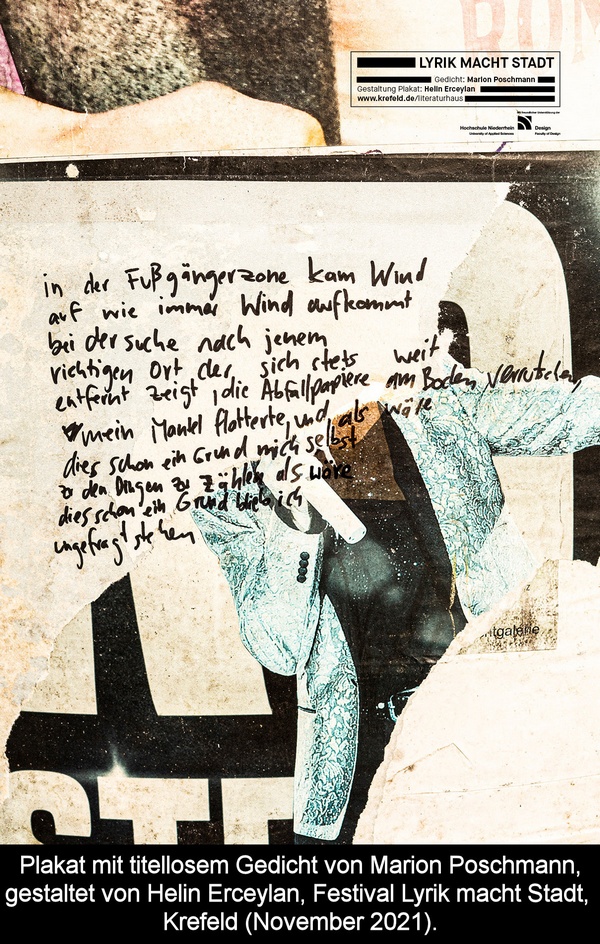 ROM
LYRIK MACHT STADT
Gedicht: Marion Poschmann
Gestaltung Plakat: Helin Erceylan
www.krefeld.de/literaturhaus
Mit freundlicher Unterstützung der
Hochschule Niederrhein
University of Applied Sciences
Design
Faculty of Design
in der Fußgängerzone kam Wind
auf wie immer Wind aufkommt
bei der suche nach jenem
richtigen Ort der sich stets weit
entfernt zeigt, die Abfallpapiere am Boden verrutschen,
mein Mantel flatterte, und als wäre
dies schon ein Grund mich selbst
zu den Dingen zu zählen als wäre
dies schon ein Grund blieb ich
ungefragt stehen
ntgalerie
STE
Plakat mit titellosem Gedicht von Marion Poschmann,
gestaltet von Helin Erceylan, Festival Lyrik macht Stadt,
Krefeld (November 2021).